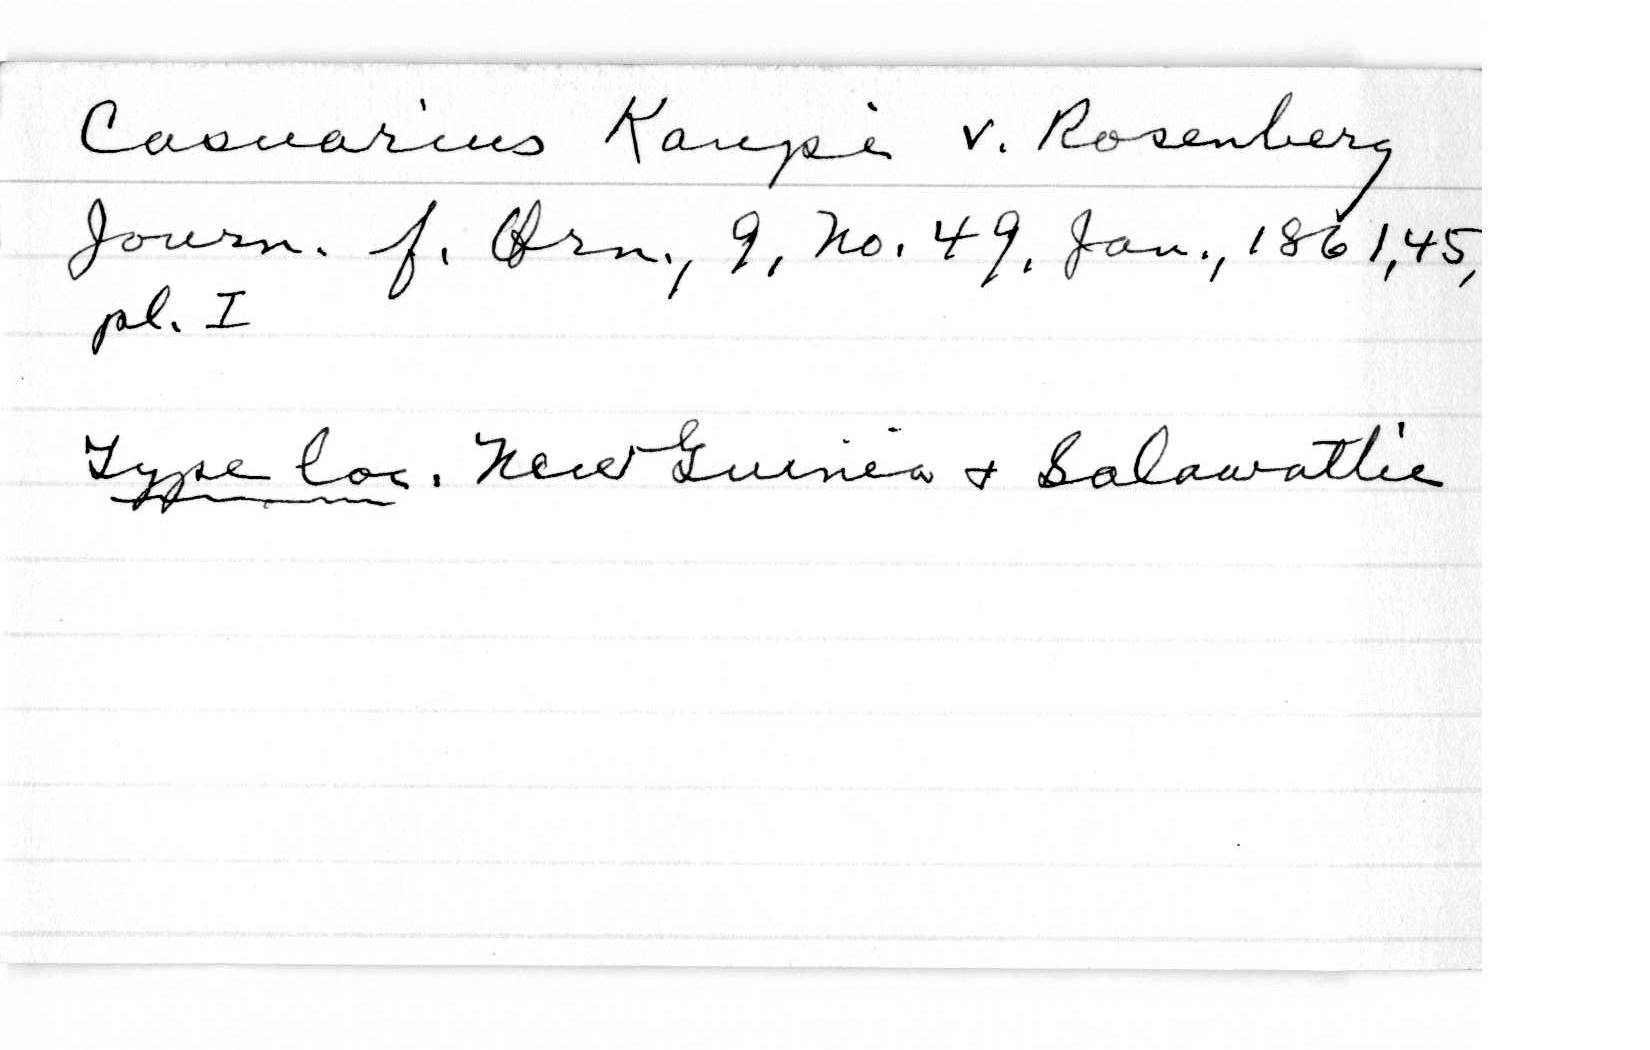 Casuarius Kaupi v. Rosenberg
Journ. f. Orn., 9, No. 49, Jan., 1861, 45,
pl. I
Type loc. New Guinea + Salawattie